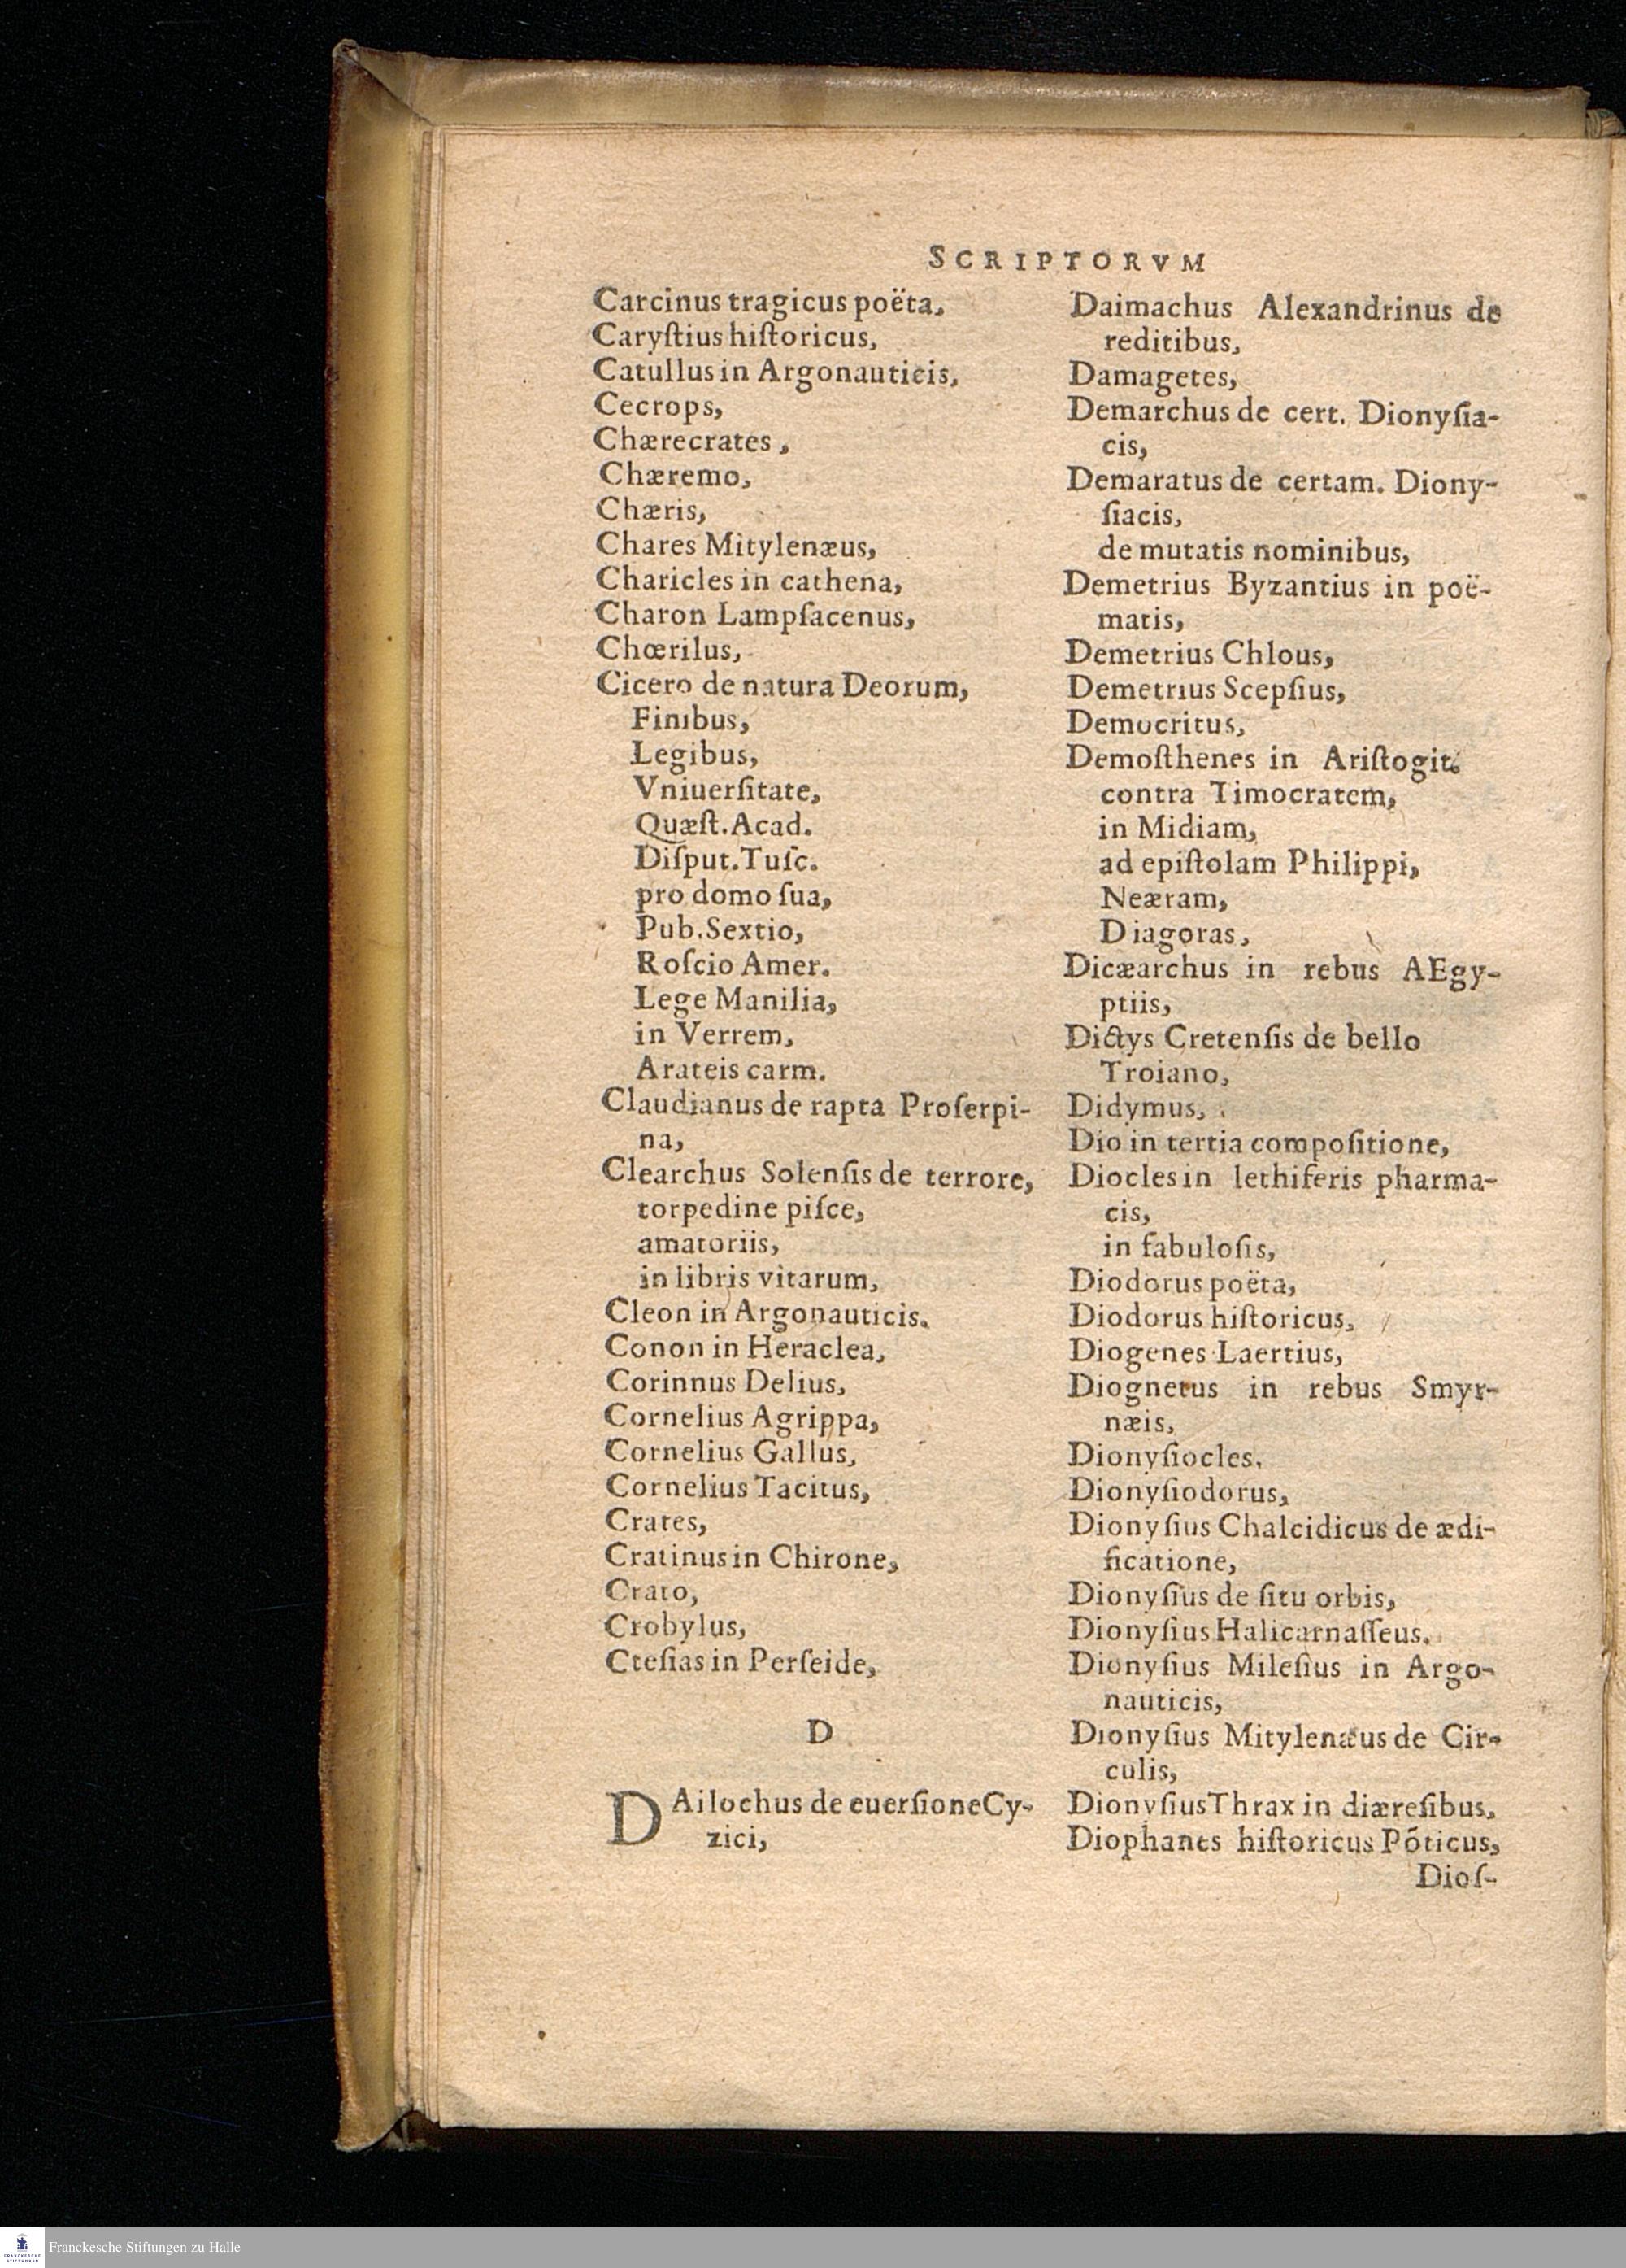 SCRIPTORVM
Carcinus tragicus poëta,
Caryſtius hiſtoricus,
Catullus in Argonauticis,
Cecrops,
Chærecrates,
Chæremo,
Chæris,
Chares Mitylenæus,
Charicles in cathena,
Charon Lampſacenus,
Chœrilus,
Cicero de natura Deorum,
Finibus,
Legibus,
Vniuerſitate,
Quæſt. Acad.
Diſput. Tuſc.
pro domo ſua,
Pub. Sextio,
Roſcio Amer.
Lege Manilia,
in Verrem,
Arateis carm.
Claudianus de rapta Proſerpi-
na,
Clearchus Solenſis de terrore,
torpedine piſce,
amatoriis,
in libris vitarum,
Cleon in Argonauticis.
Conon in Heraclea,
Corinnus Delius,
Cornelius Agrippa,
Cornelius Gallus,
Cornelius Tacitus,
Crates,
Cratinus in Chirone,
Crato,
Crobylus,
Cteſias in Perſeide,
D
DAilochus de euerſione Cy-
zici,
Daimachus Alexandrinus de
reditibus,
Damagetes,
Demarchus de cert. Dionyſia-
cis,
Demaratus de certam. Diony-
ſiacis,
de mutatis nominibus,
Demetrius Byzantius in poë-
matis,
Demetrius Chlous,
Demetrius Scepſius,
Democritus,
Demoſthenes in Ariſtogit.
contra Timocratem,
in Midiam,
ad epiſtolam Philippi,
Neæram,
Diagoras,
Dicæarchus in rebus AEgy-
ptiis,
Dictys Cretenſis de bello
Troiano,
Didymus,
Dio in tertia compoſitione,
Diocles in lethiferis pharma-
cis,
in fabuloſis,
Diodorus poëta,
Diodorus hiſtoricus,
Diogenes Laertius,
Diognetus in rebus Smyr-
næis,
Dionyſiocles,
Dionyſiodorus,
Dionyſius Chalcidicus de ædi-
ficatione,
Dionyſius de ſitu orbis,
Dionyſius Halicarnaſſeus.
Dionyſius Mileſius in Argo-
nauticis,
Dionyſius Mitylenæus de Cir-
culis,
Dionyſius Thrax in diæreſibus,
Diophanes hiſtoricus Põticus,
Dioſ-
FRANCKESCHE STIFTUNGEN
Franckesche Stiftungen zu Halle